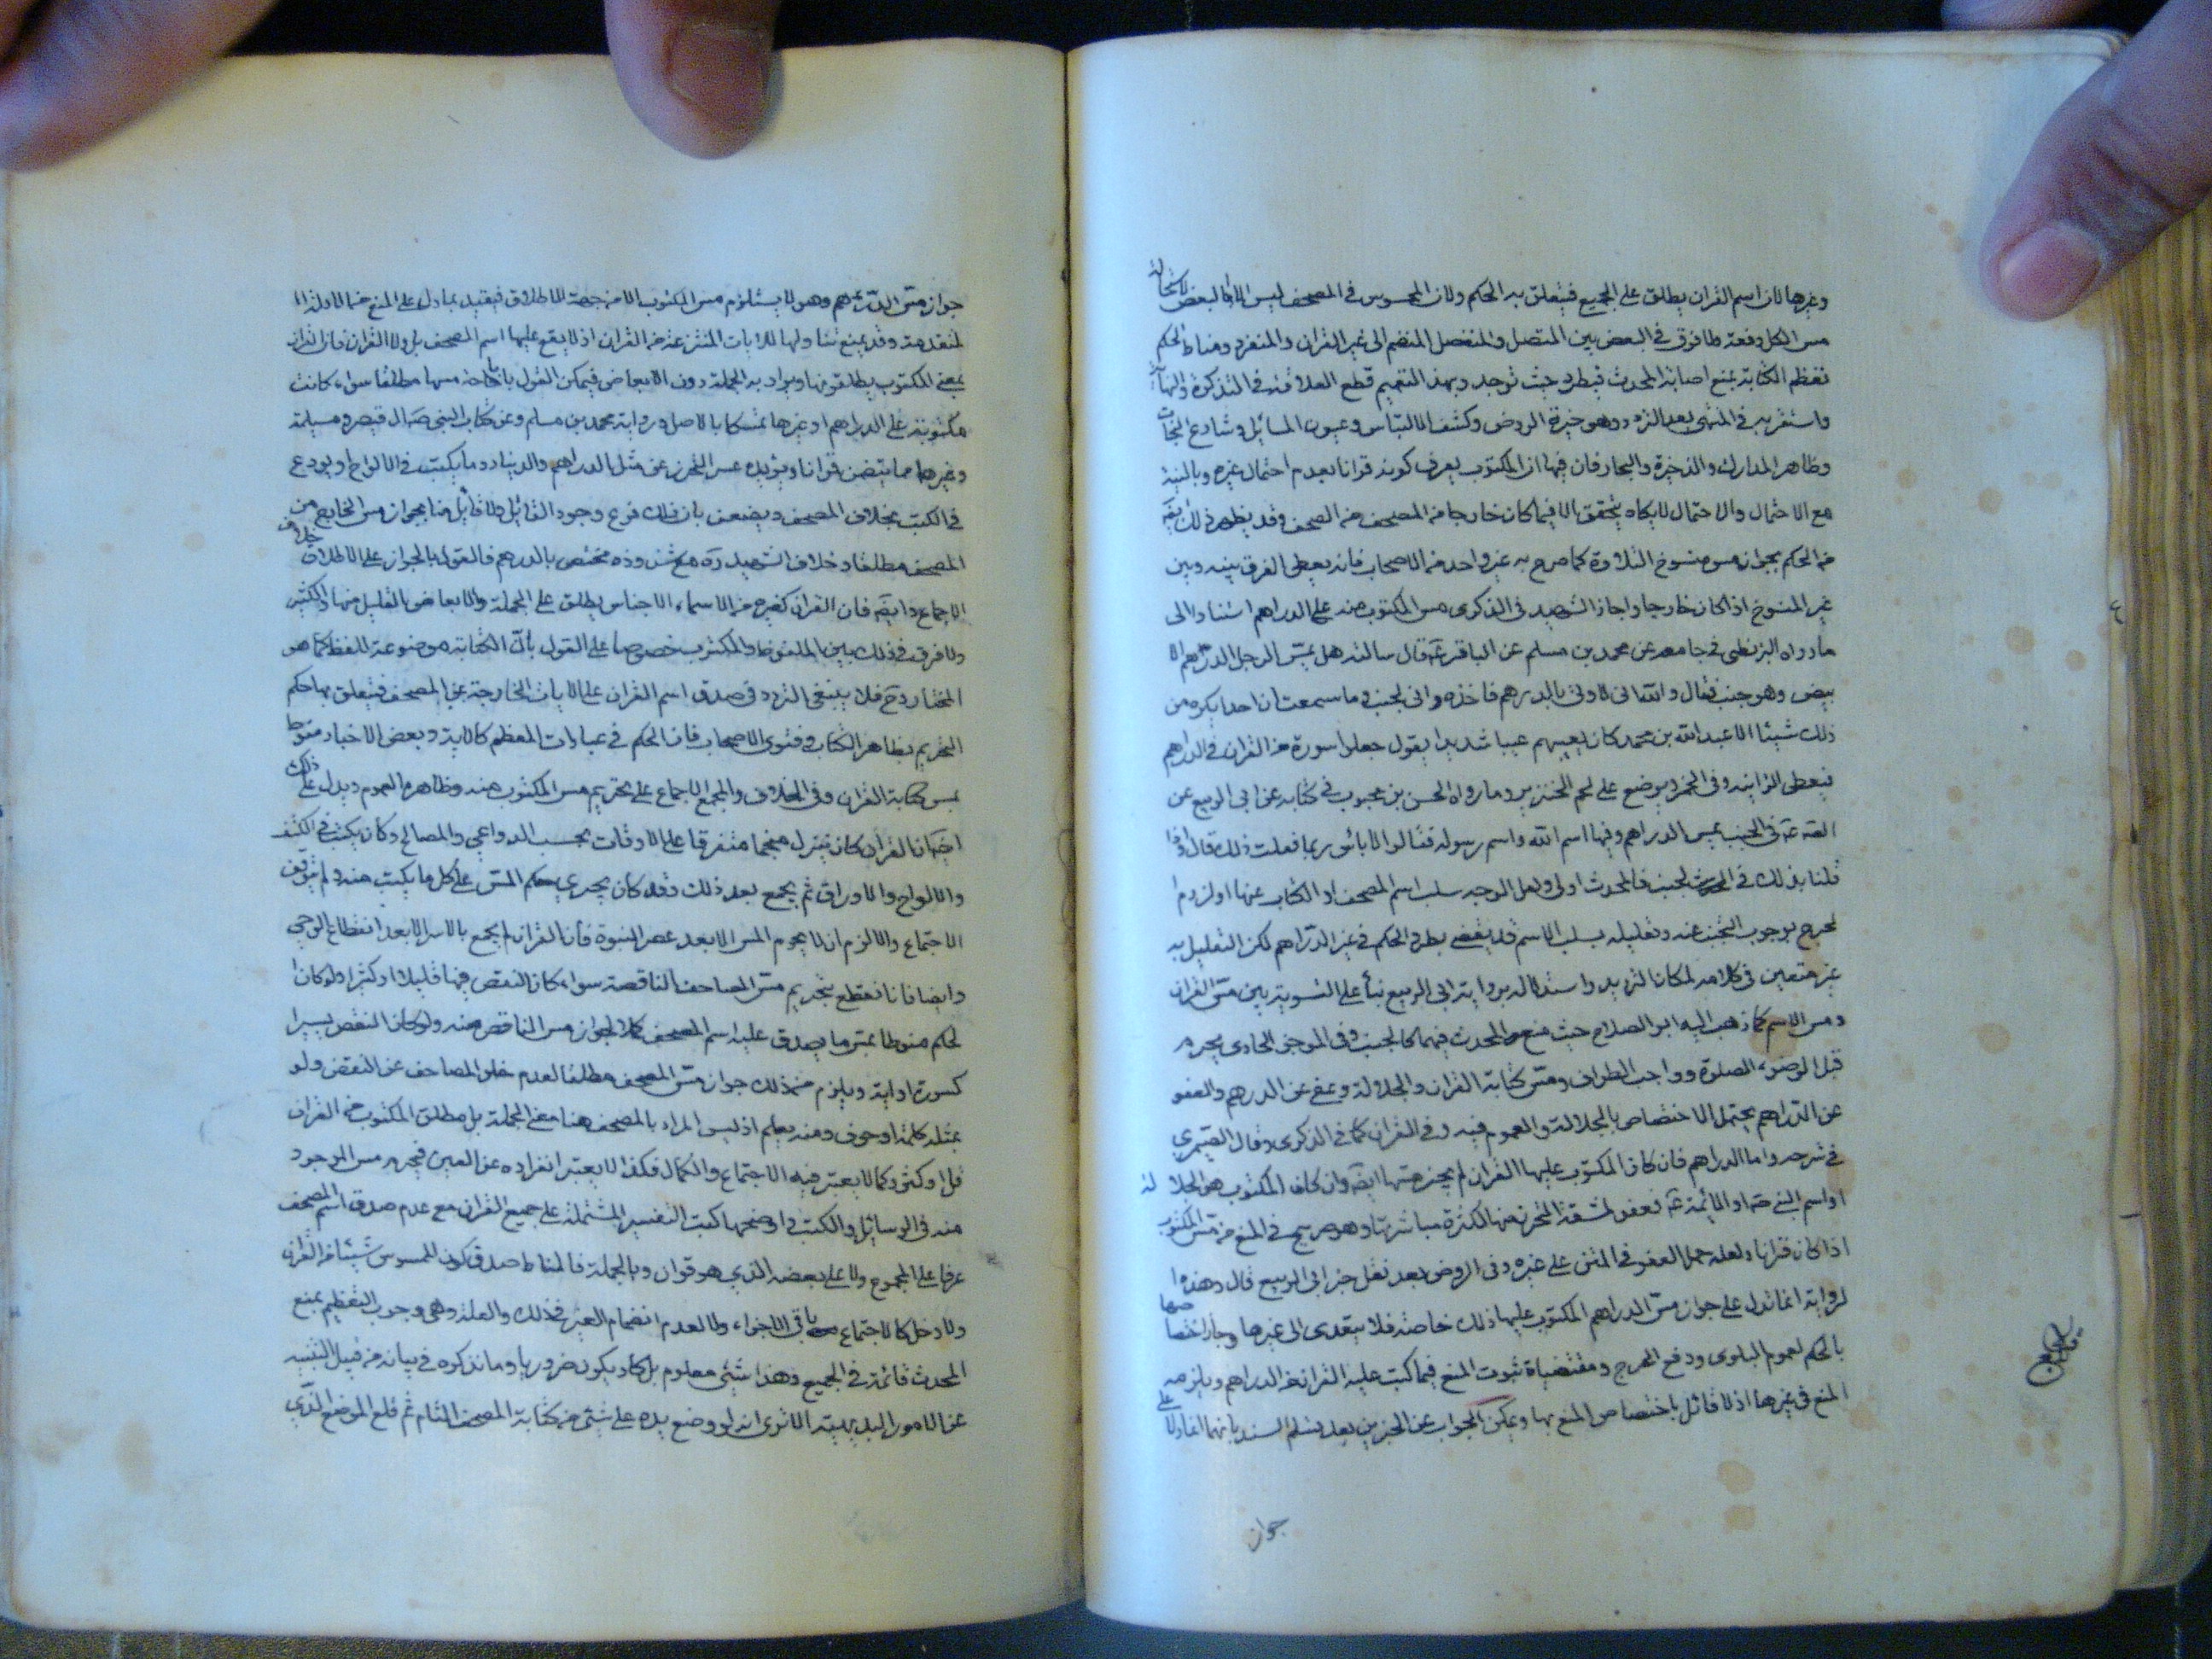 وغيرها لان اسم القران يطلق على الجميع فيتعلق به الحكم ولان المحسوس في المصحف ليس الا البعض لاستحالة
مس الكل دفعة ولا فرق في البعض بين المتصل والمنفصل المنضم الى غير القران والمنفرد ومناط الحكم
تعظم الكتابة بمنع اصابة المحدث فيطرد حيث توجد وبهذا التعميم قطع العلامة في التذكرة والنهاية
واستقربه في المنتهى بعد التردد وهو خيرة الروض وكشف الالتباس وعيون المسائل وشارع النجات
وظاهر المدارك والذخيرة والبحار فان فيها ان المكتوب يعرف كونه قرانا بعدم احتمال غيره وبالنية
مع الاحتمال والاحتمال لا يكاد يتحقق الا فيما كان خارجا من المصحف والصحف وقد يظهر ذلك
من الحكم بجواز مس منسوخ التلاوة كما صرح به غير واحد من الاصحاب فانه يعطى الفرق بينه وبين
غير المنسوخ اذا كان خارجا واجاز الشهيد في الذكرى مس المكتوب منه على الدراهم استنادا الى
ما رواه البزنطى في جامعه عن محمد بن مسلم عن الباقر ع قال سالته هل يمس الرجل الدرهم الا
بيض وهو جنب فقال والله انى لاوتى بالدرهم فاخذه وانى لجنب وما سمعت ان احدا يكره من
ذلك شيئا الا عبد الله بن محمد كان يعيبهم عيبا شديدا يقول جعلوا سورة من القران في الدراهم
فيعطى الزانية وفي الخمر ويوضع على لحم الخنزير وما رواه الحسن بن محبوب في كتابه عن ابى الربيع عن
الصه ع في الجنب يمس الدراهم وفيها اسم الله واسم رسوله فقال لا باس ربما فعلت ذلك قال واذا
قلنا بذلك في الجنب فالمحدث اولى ولعل الوجه سلب اسم المصحف او الكتاب عنها او لزوم ا
لحرج بوجوب التجنب عنه وتعليله بسلب الاسم قد يفضى بطرد الحكم في غير الدراهم لكن التعليل به
غير متعين في كلامه لمكان الترديد واستدلاله برواية ابى الربيع بناء على التسوية بين مس القران
ومس الاسم كما ذهب اليه ابو الصلاح حيث منع المحدث فيهما كالجنب وفي الموجز الحاوى يحرم
قبل الوضوء الصلوة وواجب الطواف ومس كتابة القران والجلالة وعفى عن الدرهم والعفو
عن الدراهم يحتمل الاختصاص بالجلالة والعموم فيه وفي القران كما في الذكرى وقال الصيمري
في شرحه واما الدراهم فان كان المكتوب عليها القران لم يجز مسها ايضا وان كان المكتوب هو الجلالة
او اسم النبي ص او الائمة ع فعفو لمشقة التحرز منها لكثرة مباشرتها وهو صريح في المنع من مس المكتوب
اذا كان قرانا ولعله حمل العفو في المتن على غيره وفي الروض بعد نقل خبر ابى الربيع قال وهذه ا
لرواية انما تدل على جواز مس الدراهم المكتوب عليها ذلك خاصة فلا يتعدى الى غيرها وجاز اختصاصها
بالحكم لعموم البلوى ودفع الحرج ومقتضياة ثبوت المنع فيما كتب عليه القران من الدراهم ويلزمه
المنع في غيرها اذ لا قائل باختصاص المنع بها ويمكن الجواب عن الخبرين بعد تسلم السند بانهما انما دلا على
جواز
جواز مس الدراهم وهو لا يستلزم مس المكتوب الا من جهة الاطلاق فيقيد بما دل على المنع من الادلة ا
لمتقدمة وقد يمنع تناولها للايات المنتزعة من القران اذ لا يقع عليها اسم المصحف بل ولا القران فان القران
بمعنى المكتوب يطلق ويراد به الجملة دون الابعاض فيمكن القول باباحة مسها مطلقا سواء كانت
مكتوبة على الدراهم او غيرها تمسكا بالاصل ورواية محمد بن مسلم وعن كتاب النبي ص ال قيصر ومسيلمة
وغيرهما مما يتضمن قرانا ويؤيده عسر التحرز عن مثل الدراهم والدينار وما يكتب في الالواح او يودع
في الكتب بخلاف المصحف ويضعف بان ذلك فرع وجود القائل ولا قائل منا بجواز مس الخارج من
المصحف مطلقا وخلاف الشهيد ره مع شذوذه مختص بالدرهم فالقول بالجواز على الاطلاق خلاف
الاجماع وايضا فان القران كغيره من الاسماء الاجناس يطلق على الجملة والابعاض بالقليل منها والكثير
ولا فرق في ذلك بين الملفوظ والمكتوب خصوصا على القول بان الكتابة موضوعة للفظ كما هو
المختار وح فلا ينبغى التردد في صدق اسم القران على الايات الخارجة عن المصحف فيتعلق بها حكم
التحريم بظاهر الكتاب وفتوى الاصحاب فان الحكم في عبارات المعظم كالاية وبعض الاخبار منوط
بمس كتابة القران وفي الخلاف والمجمع الاجماع على تحريم مس المكتوب منه وظاهره العموم ويدل على ذلك
ايضا ان القران كان ينزل منجما متفرقا على الاوقات بحسب الدواعي والمصالح وكان يكتب في الكتف
والالواح والاوراق ثم يجمع بعد ذلك وقد كان يجرى حكم المس على كل ما يكتب منه ولم يتوقف
الاجتماع والا لزم ان لا يحرم المس الا بعد عصر النبوة فان القران لم يجمع بالاسر الا بعد انقطاع الوحى
وايضا فانا نقطع بتحريم مس المصاحف الناقصة سواء كان النقص فيها قليلا او كثيرا ولو كان ا
لحكم منوطا بمس ما يصدق عليه اسم المصحف كملا لجواز مس الناقص منه ولو كان النقص يسيرا
كسورة او اية ويلزم من ذلك جواز مس المصحف مطلقا لعدم خلو المصاحف عن النقص ولو
بمثل كلمة او حرف ومنه يعلم اذ ليس المراد بالمصحف هنا معنى الجملة بل مطلق المكتوب من القران
قل او كثر وكما لا يعتبر فيه الاجتماع والكمال فكذا لا يعتبر انفراده عن الغير فيحرم مس الموجود
منه في الرسائل والكتب واوضحها كتب التفسير المشتملة على جميع القران مع عدم صدق اسم المصحف
عرفا على المجموع ولا على بعضه الذي هو قران وبالجملة فالمناط صدق كون الممسوس شيئا من القران
ولا دخل كالاجتماع باقى الاجزاء ولا لعدم انضمام الغير في ذلك والعلة وهى وجوب التعظيم بمنع
المحدث قائمة في الجميع وهذا شئ معلوم بل كاد يكون ضروريا وما نذكره في بيانه من قبيل التنبيه
عن الامور البديهية الا ترى انه لو وضع يده على شئ من كتابة المصحف التام ثم قلع الموضع الذي